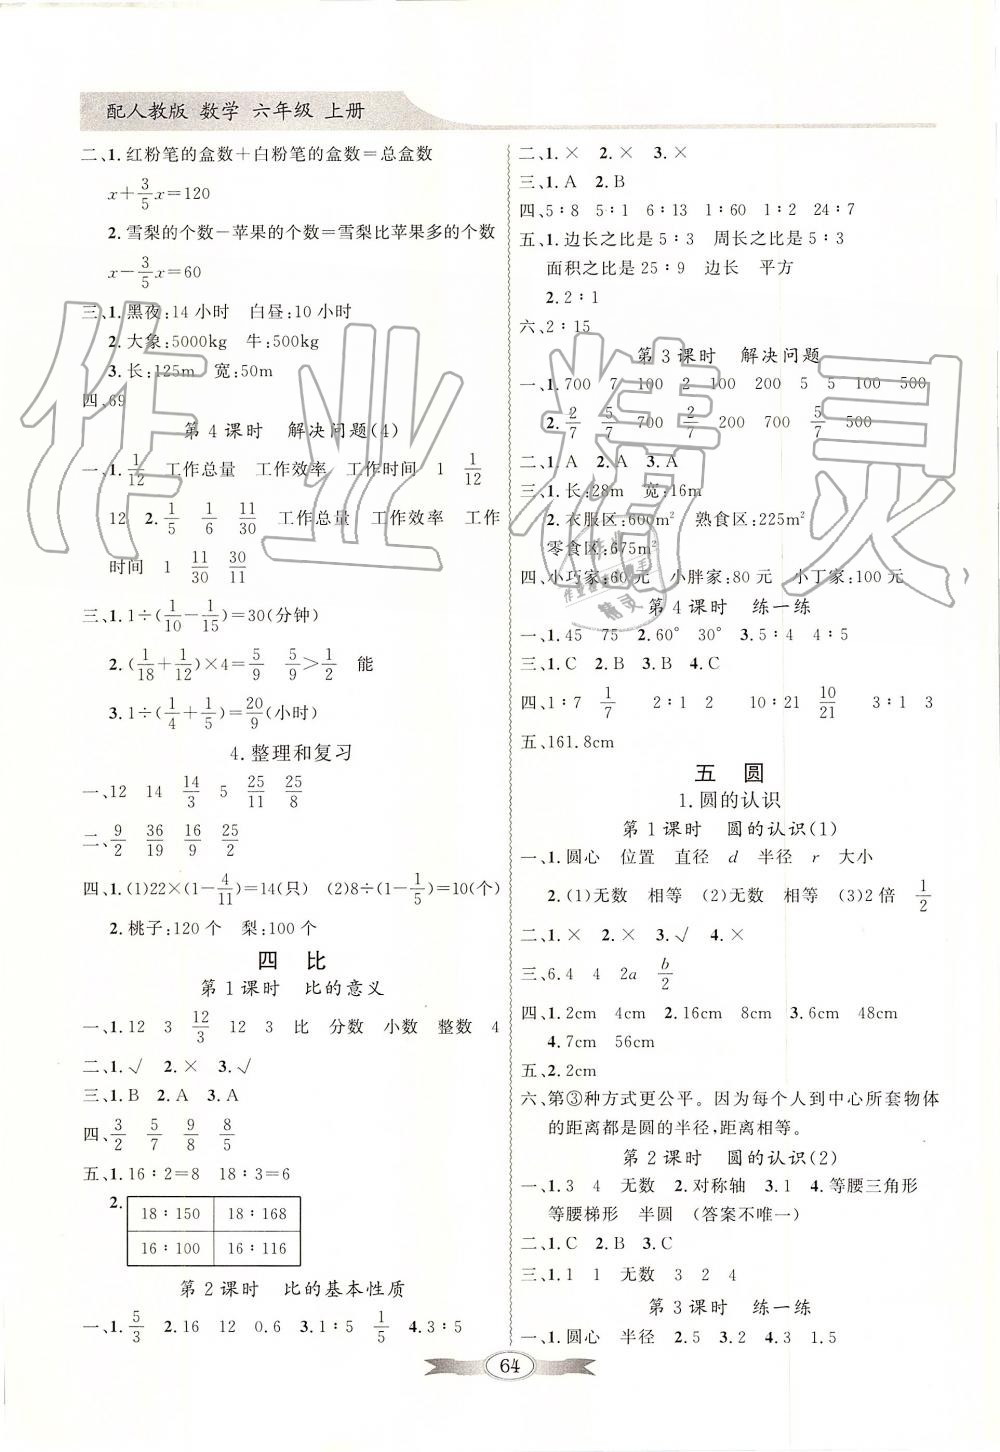 配人教版 数学 六年级 上册
二、1. 红粉笔的盒数＋白粉笔的盒数＝总盒数
x＋3/5x＝120
2. 雪梨的个数－苹果的个数＝雪梨比苹果多的个数
x－3/5x＝60
三、1. 黑夜:14小时 白昼:10小时
2. 大象:5000kg 牛:500kg
3. 长:125m 宽:50m
四、69
第4课时 解决问题(4)
一、1. 1/12 工作总量 工作效率 工作时间 1 1/12
12 2. 1/5 1/6 11/30 工作总量 工作效率 工作
时间 1 11/30 30/11
三、1. 1÷(1/10－1/15)＝30(分钟)
2. (1/18＋1/12)×4＝5/9 5/9＞1/2 能
3. 1÷(1/4＋1/5)＝20/9(小时)
4. 整理和复习
一、12 14 14/3 5 25/11 25/8
二、9/2 36/19 16/9 25/2
四、1. (1)22×(1－4/11)＝14(只) (2)8÷(1－1/5)＝10(个)
2. 桃子:120个 梨:100个
四 比
第1课时 比的意义
一、1. 12 3 12/3 12 3 比 分数 小数 整数 4
二、1. √ 2. × 3. √
三、1. B 2. A 3. A
四、3/2 5/7 9/8 8/5
五、1. 16∶2＝8 18∶3＝6
2. 18∶150 18∶168
16∶100 16∶116
第2课时 比的基本性质
一、1. 5/3 2. 16 12 0.6 3. 1∶5 1/5 4. 3∶5
二、1. × 2. × 3. ×
三、1. A 2. B
四、5∶8 5∶1 6∶13 1∶60 1∶2 24∶7
五、1. 边长之比是5∶3 周长之比是5∶3
面积之比是25∶9 边长 平方
2. 2∶1
六、2∶15
第3课时 解决问题
一、1. 700 7 100 2 100 200 5 5 100 500
2. 2/7 5/7 700 2/7 200 700 5/7 500
二、1. A 2. A 3. A
三、1. 长:28m 宽:16m
2. 衣服区:600m² 熟食区:225m²
零食区:675m²
四、小巧家:60元 小胖家:80元 小丁家:100元
第4课时 练一练
一、1. 45 75 2. 60° 30° 3. 5∶4 4∶5
三、1. C 2. B 3. B 4. C
四、1∶7 1/7 2∶1 2 10∶21 10/21 3∶1 3
五、161.8cm
五 圆
1. 圆的认识
第1课时 圆的认识(1)
一、1. 圆心 位置 直径 d 半径 r 大小
2. (1)无数 相等 (2)无数 相等 (3)2倍 1/2
二、1. × 2. × 3. √ 4. ×
三、6.4 4 2a b/2
四、1. 2cm 4cm 2. 16cm 8cm 3. 6cm 48cm
4. 7cm 56cm
五、2. 2cm
六、第③种方式更公平。因为每个人到中心所套物体
的距离都是圆的半径,距离相等。
第2课时 圆的认识(2)
一、1. 3 4 无数 2. 对称轴 3. 1 4. 等腰三角形
等腰梯形 半圆 (答案不唯一)
二、1. C 2. B 3. C
三、1. 1 1 无数 3 2 4
第3课时 练一练
一、1. 圆心 半径 2. 5 3. 2 4. 3 1.5
64
作业精灵